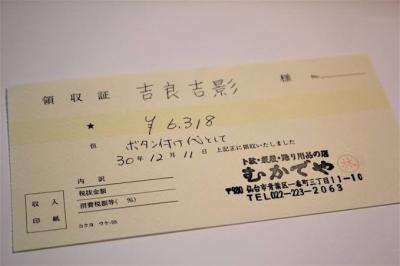 領収証 吉良吉影 様 No.
★ ¥6,318
但 ボタン付け代として
30年12月11日 上記正に領収いたしました
内訳
税抜金額
消費税額等( %)
収入印紙
コクヨ ウケ-98
卜伝・袋屋・踊り用品の店
むかでや
仙台市青葉区一番町三丁目11-10
TEL022-223-2063